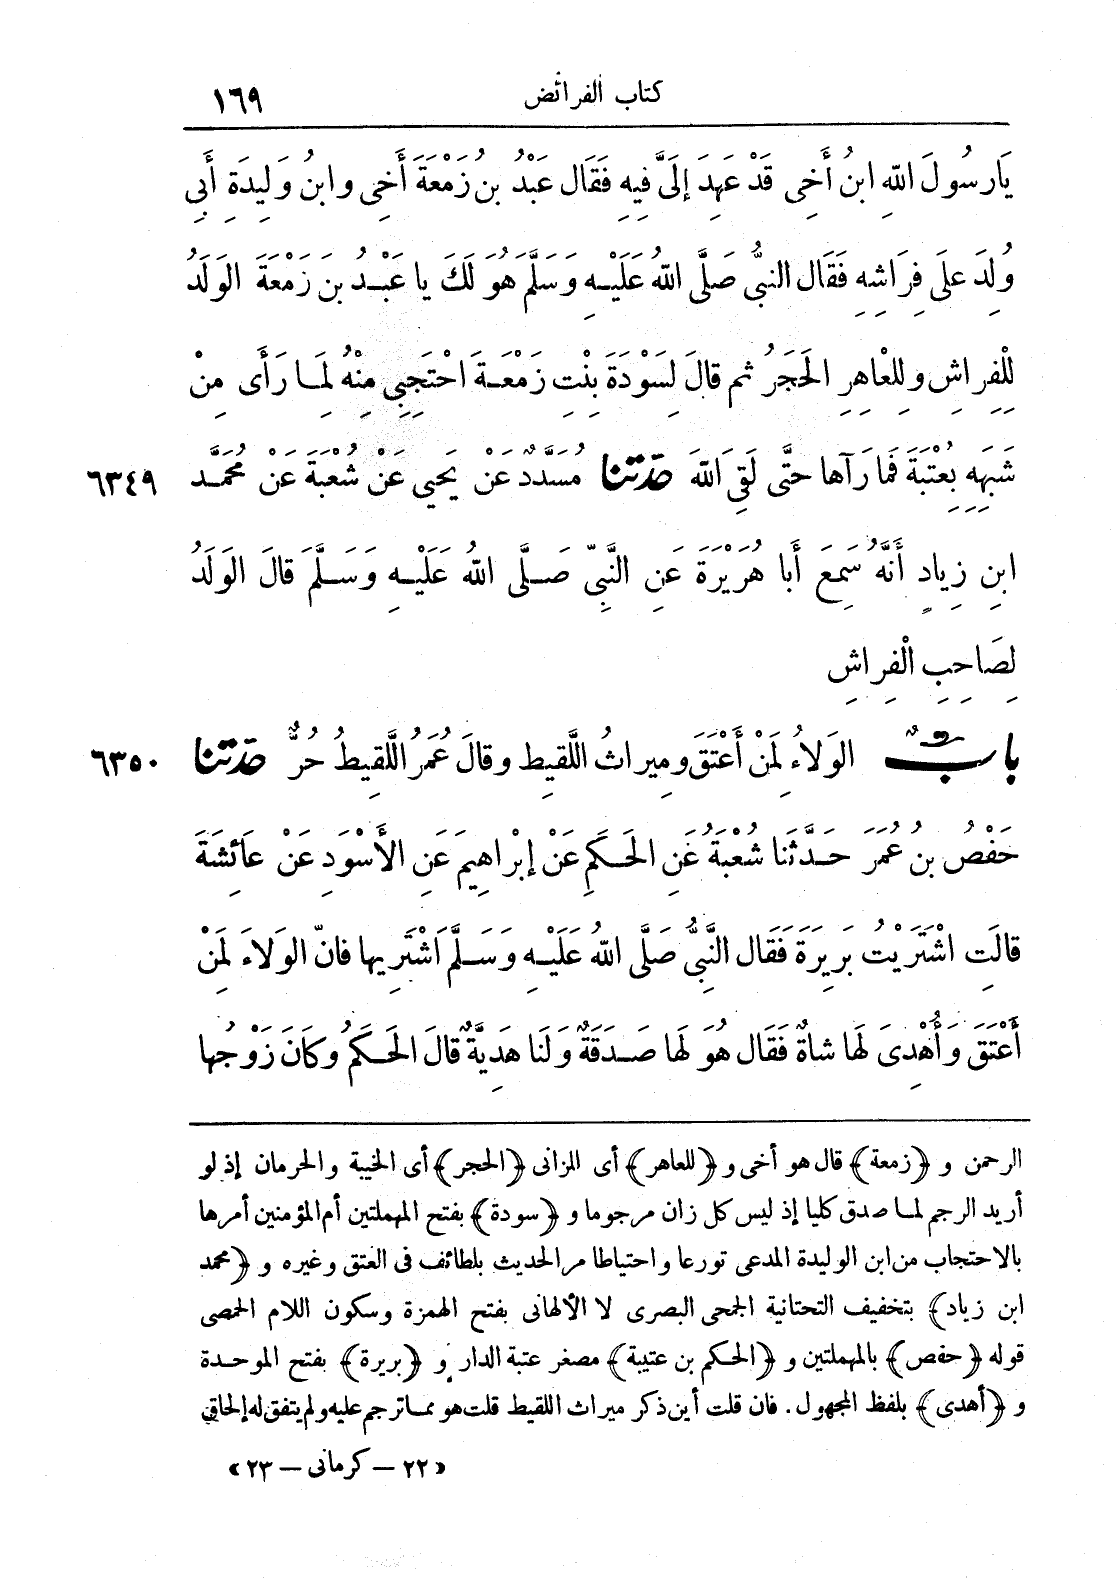 كتاب الفرائض ١٦٩
يَارسُولَ اللّهِ ابنُ أَخِى قَدْ عَهِدَ إِلَىَّ فِيهِ فَقَال عَبْدُ بن زَمْعَةَ أَخِى وابنُ وَلِيدَةِ أَبِى
وُلِدَ علَى فِرَاشِهِ فَقَال النبىُّ صَلَّى اللّهُ عَلَيْهِ وَسَلَّمَ هُوَ لَكَ يا عَبْدُ بن زَمْعَةَ الوَلَدُ
لِلْفِرِاشِ وَلِلْعاهِرِ الحَجَرُ ثم قالَ لِسَوْدَةَ بِنْتِ زَمْعَةَ احْتَجِبِي مِنْهُ لِمَا رَأَى مِنْ
شَبَهِهِ بِعُتْبَةَ فَمَا رَآها حتَّى لَقِىَ اللّهَ حَدَّثنا مُسَدَّدٌ عَنْ يَحيي عَنْ شُعْبَةَ عَنْ مُحَمَّد ٦٣٤٩
ابنِ زِيادٍ أَنَّهُ سَمِعَ أَبا هُرَيْرَةَ عَنِ النَّبِّي صَلَّى اللّهُ عَلَيْهِ وَسَلَّمَ قالَ الوَلَدُ
لِصَاحِبِ الْفِراشِ
بابٌ الوَلاءُ لِمَنْ أَعْتَقَ ومِيراثُ اللَّقِيط وقالَ عُمَرُ اللَّقِيطُ حُرٌّ حَدَّثنا ٦٣٥٠
حَفْصُ بن عُمَرَ حَدَّثَنا شُعْبَةُ عَنِ الحَكَمِ عَنْ إِبْراهِيمَ عَنِ الأَسْوَدِ عَنْ عائِشَةَ
قالَتِ اشْتَرَيْتُ بَرِيرَةَ فَقَال النَّبىُّ صَلَّى اللّهُ عَلَيْهِ وَسَلَّمَ اشْتَرِيها فانّ الوَلاءَ لِمَنْ
أَعْتَقَ وَأُهْدِىَ لَها شاةٌ فَقَال هُوَ لَها صَدَقَةٌ وَلَنا هَدِيَّةٌ قالَ الحَكَمُ وكَانَ زَوْجُها
الرحمن و ﴿زمعة﴾ قال هو أخى و ﴿للعاهر﴾ أى الزانى ﴿الحجر﴾ أى الخيبة والحرمان إذ لو
أريد الرجم لما صدق كليا إذ ليس كل زان مرجوما و ﴿سودة﴾ بفتح المهملتين أم المؤمنين أمرها
بالاحتجاب من ابن الوليدة المدعى تورعا واحتياطا مر الحديث بلطائف فى العتق وغيره و ﴿محمد
ابن زياد﴾ بتخفيف التحتانية الجمحى البصرى لا الألهانى بفتح الهمزة وسكون اللام الحمصى
قوله ﴿حفص﴾ بالمهملتين و ﴿الحكم بن عتيبة﴾ مصغر عتبة الدار و ﴿بريرة﴾ بفتح الموحدة
و ﴿أهدى﴾ بلفظ المجهول. فان قلت أين ذكر ميراث اللقيط قلت هو مما ترجم عليه ولم يتفق له إلحاق
«٢٢ – كرمانى – ٢٣»